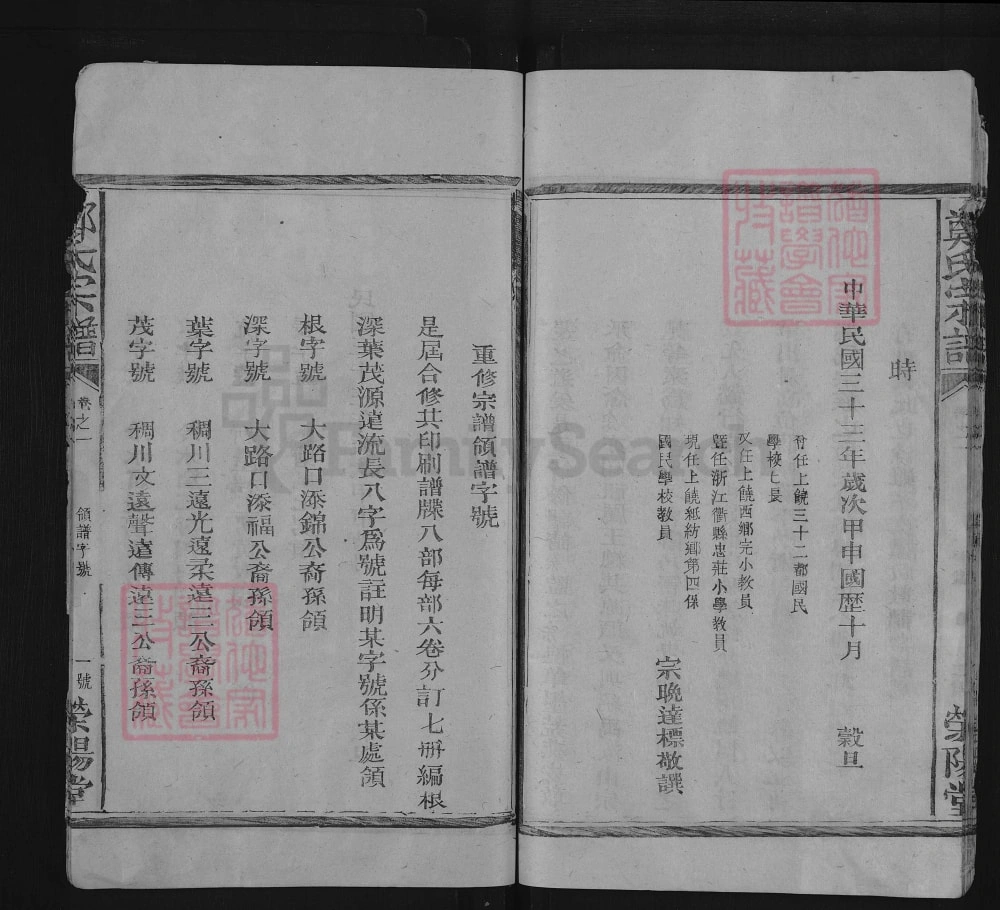 鄭氏宗譜
榮陽堂
時
中華民國三十三年歲次甲申國歷十月 穀旦
曾任上饒三十二都國民
學校七長
又任上饒西鄉完小教員
曁任浙江衢縣忠莊小學教員
現任上饒紙紡鄉第四保
國民學校教員
宗晚達標敬譔
重修宗譜領譜字號
是屆合修共印刷譜牒八部每部六卷分訂七册編根
深葉茂源遠流長八字爲號註明某字號係某處領
根字號 大路口添錦公裔孫領
深字號 大路口添福公裔孫領
葉字號 稠川三遠光遠柔遠三公裔孫領
茂字號 稠川文遠聲遠傳遠三公裔孫領
鄭氏宗譜
卷之一
領譜字號
一號
榮陽堂
FamilySearch